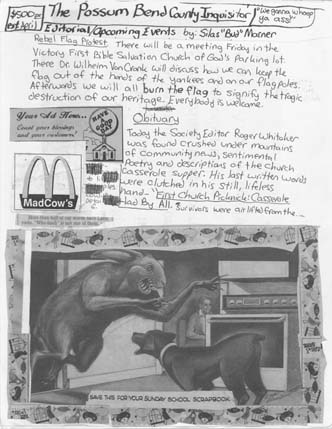 $5000 in April
The Possum Bend County Inquisitor
"we gonna whoop ya ass"
Editorial/Upcoming Events by: Silas "Bud" Marner
Rebel Flag Protest There will be a meeting Friday in the
Victory First Bible Salvation Church of God's Parking lot.
There Dr. Wilhelm Von Crank will discuss how we can keep the
flag out of the hands of the yankees and on our flag poles.
Afterwards we will all burn the flag to signify the tragic
destruction of our heritage. Everybody is welcome.
Your Ad Here...
Count your blessings
and your customers!
HAVE A GOD DAY
MadCow's
Obituary
Today the Society Editor Roger Whitaker
was found crushed under mountains
of Community news, sentimental
Poetry and descriptions of the Church
Casserole supper. His last written words
were clutched in his still, lifeless
hand- "First Church Picknick: Casserole
Had By All. Survivors were airlifted from the...
SAVE THIS FOR YOUR SUNDAY SCHOOL SCRAPBOOK.